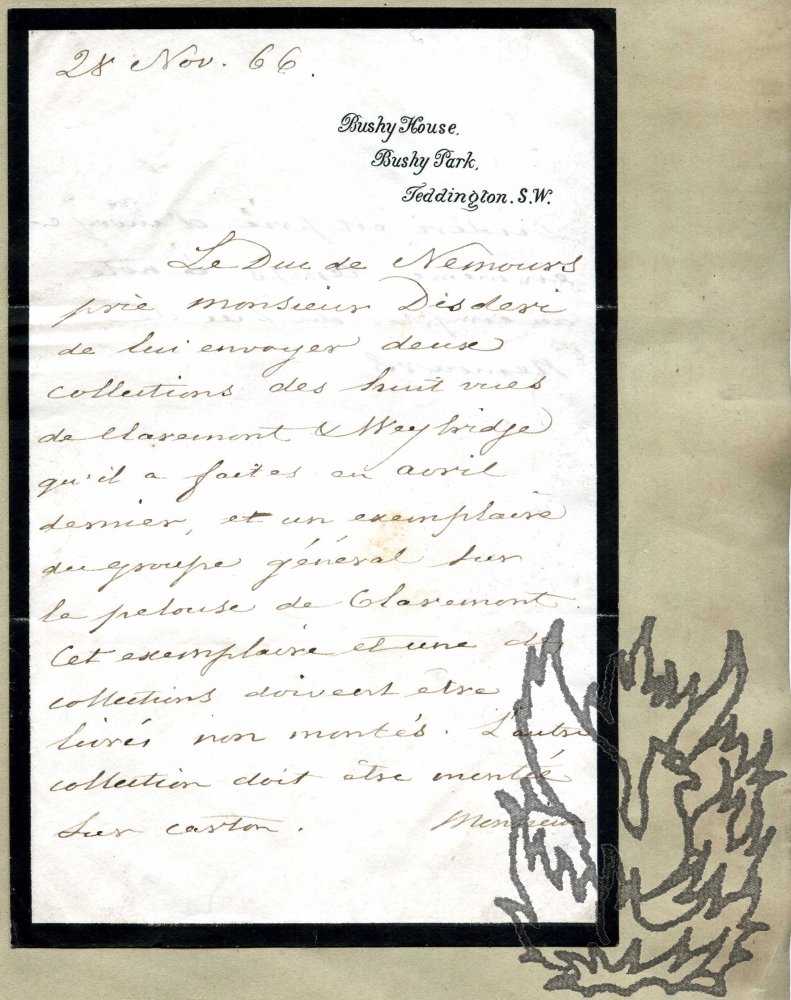 28 Nov. 66.
Bushy House.
Bushy Park,
Teddington. S.W.
Le Duc de Nemours
prie monsieur Disderi
de lui envoyer deux
collections des huit vues
de Claremont & Weybridge
qu'il a faites en avril
dernier, et un exemplaire
du groupe général sur
la pelouse de Claremont.
Cet exemplaire et une de
collections doivent être
livrés non montés. L'autre
collection doit être montée
sur carton. Monsieur